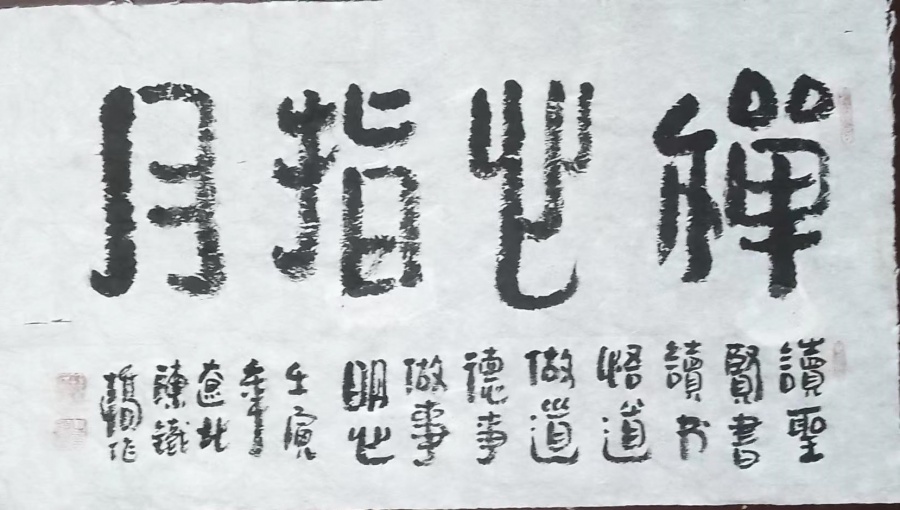 禪心指月
讀聖
賢書
讀书
悟道
做道
德事
做事
明心
壬寅
年
辽北
陳鐵
作